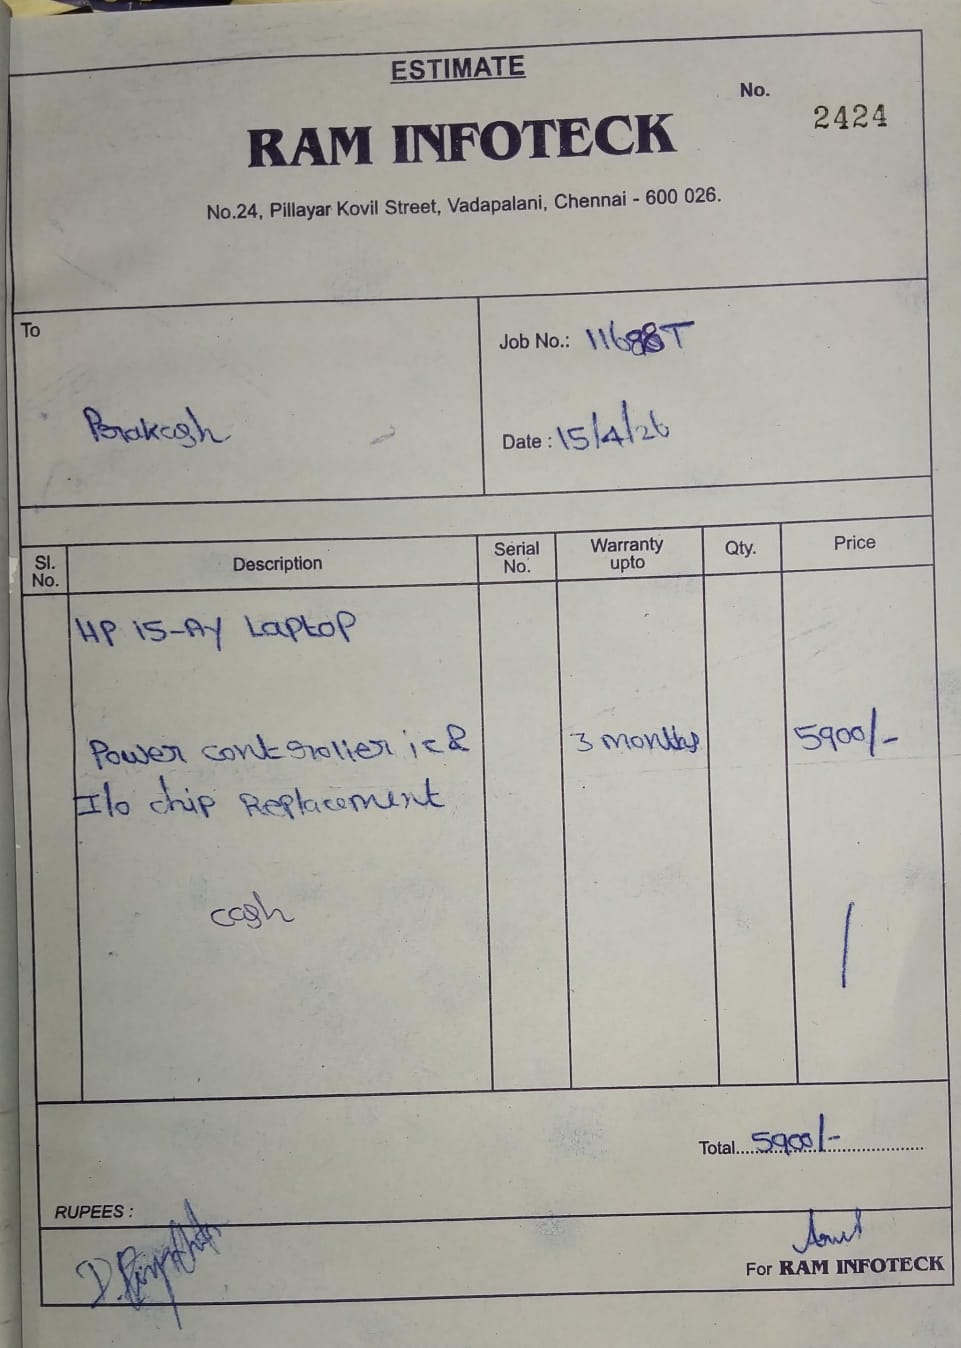 ESTIMATE
No.
2424
RAM INFOTECK
No.24, Pillayar Kovil Street, Vadapalani, Chennai - 600 026.
To
Prakash
Job No.: 11688T
Date : 15/4/26
Sl. No. Description Serial No. Warranty upto Qty. Price
HP 15-AY Laptop
Power controller ic & 3 months 5900/-
I/o chip Replacement
cash
Total....5900/-....
RUPEES :
For RAM INFOTECK